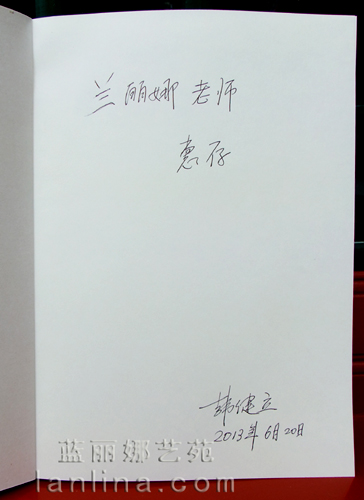 兰丽娜老师
惠存
韩健立
2013年6月20日
蓝丽娜艺苑
lanlina.com